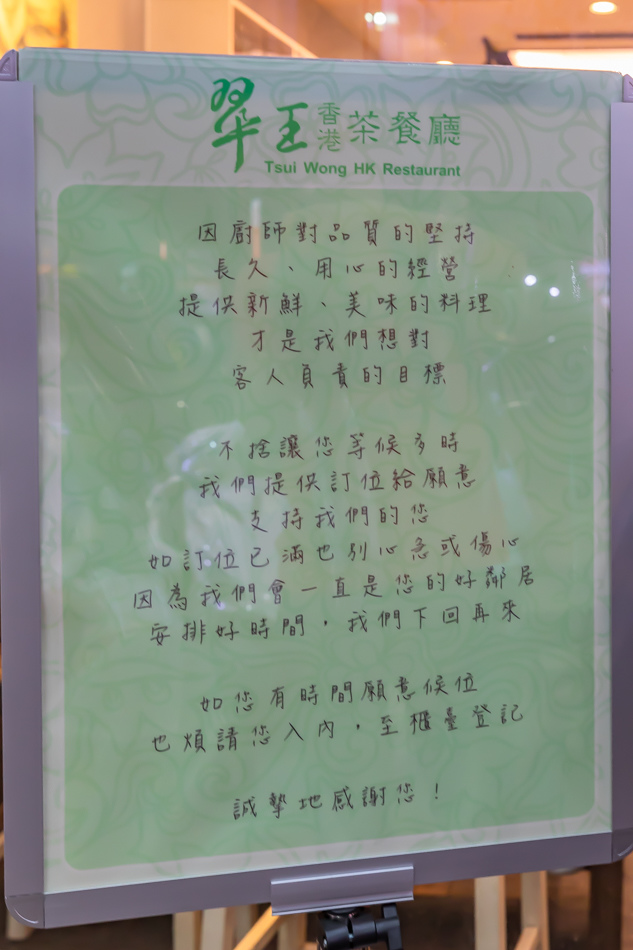 翠王香港茶餐廳
Tsui Wong HK Restaurant
因廚師對品質的堅持
長久、用心的經營
提供新鮮、美味的料理
才是我們想對
客人負責的目標
不捨讓您等候多時
我們提供訂位給願意
支持我們的您
如訂位已滿也別心急或傷心
因為我們會一直是您的好鄰居
安排好時間，我們下回再來
如您有時間願意候位
也煩請您入內，至櫃臺登記
誠摯地感謝您！